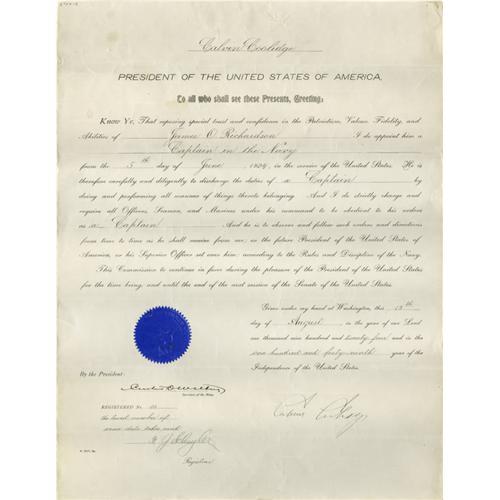 Calvin Coolidge
PRESIDENT OF THE UNITED STATES OF AMERICA,
To all who shall see these Presents, Greeting:
Know Ye, That reposing special trust and confidence in the Patriotism, Valour, Fidelity, and
Abilities of James O Richardson I do appoint him a
Captain in the Navy
from the 5th day of June 1924, in the service of the United States. He is
therefore carefully and diligently to discharge the duties of a Captain by
doing and performing all manner of things thereto belonging. And I do strictly charge and
require all Officers, Seamen, and Marines under his command to be obedient to his orders
as a Captain And he is to observe and follow such orders and directions
from time to time as he shall receive from me, or the future President of the United States of
America, or his Superior Officer set over him, according to the Rules and Discipline of the Navy.
This Commission to continue in force during the pleasure of the President of the United States
for the time being, and until the end of the next session of the Senate of the United States.
Given under my hand at Washington, this 13th
day of August in the year of our Lord
one thousand nine hundred and twenty four and in the
one hundred and forty ninth year of the
Independence of the United States.
By the President:
Curtis D Wilbur
Secretary of the Navy
Calvin Coolidge
REGISTERED No.
the Naval
same date
Registrar